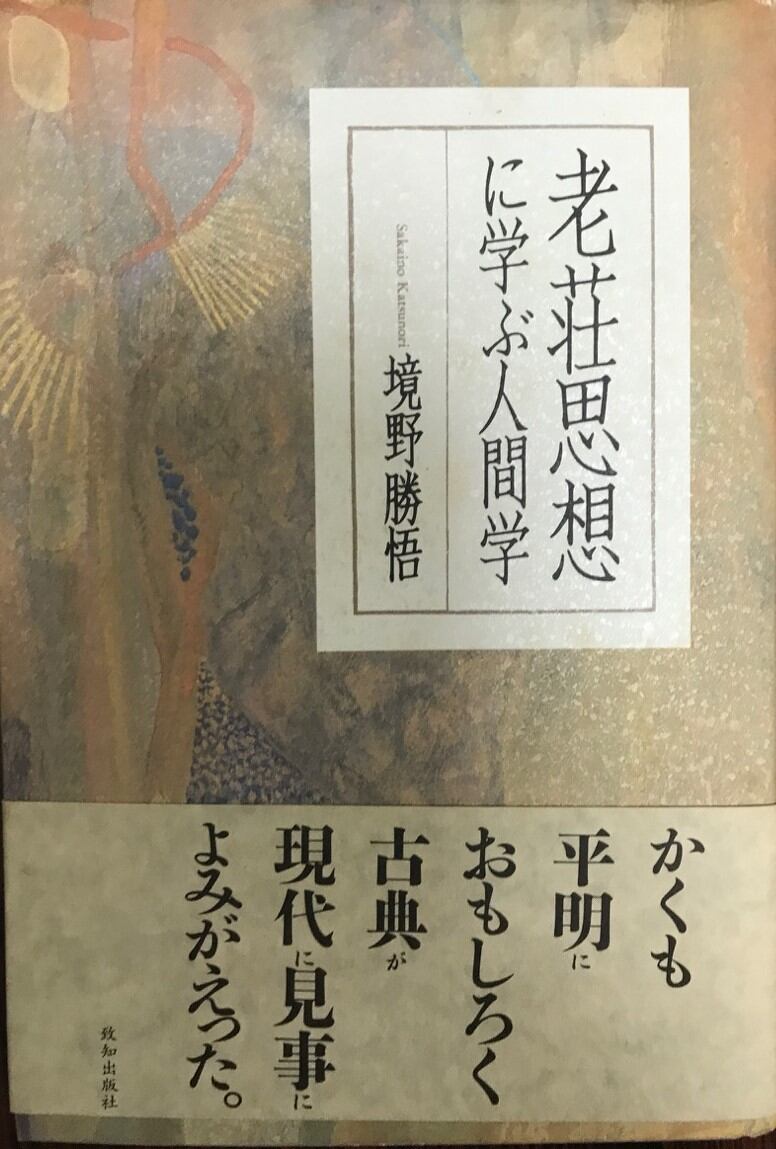 老荘思想
に学ぶ人間学
Sakaino Katsunori
境野勝悟
かくも
平明に
おもしろく
古典が
現代に見事に
よみがえった。
致知出版社